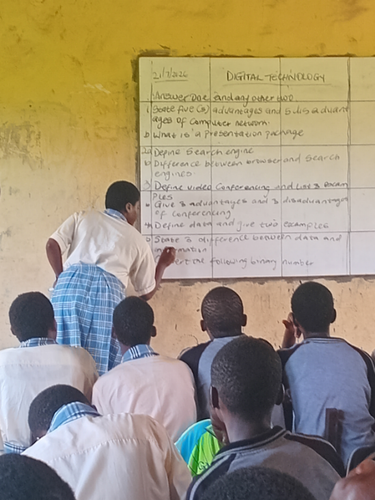 21/7/2026 DIGITAL TECHNOLOGY
Answer one and any other two
1 State five (5) advantages and 5 disadvant
ages of computer network
b What is a presentation package
2a Define Search engine
b Difference between browser and search
engines
3 Define video Conferencing and List 3 Exam
ples
b Give 3 advantages and 3 disadvantages
of conferencing
4a Define data and give two examples
b State 3 difference between data and
following binary number